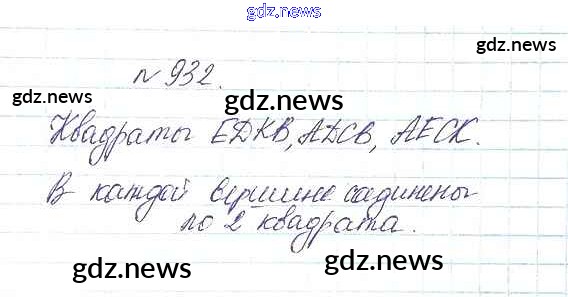 gdz.news
gdz.news
№ 932.
gdz.news
gdz.news
gdz.news
Квадраты EDKB, ADCB, AECK.
gdz.news
gdz.news
В каждой вершине содинены
по 2 квадрата.
gdz.news
gdz.news